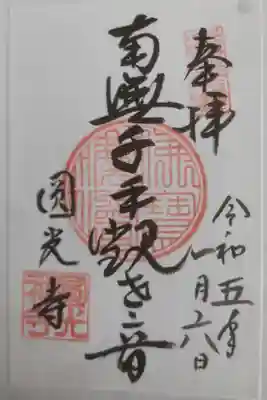 奉拝
令和五年
月
日
南無千手觀世音
圓光寺